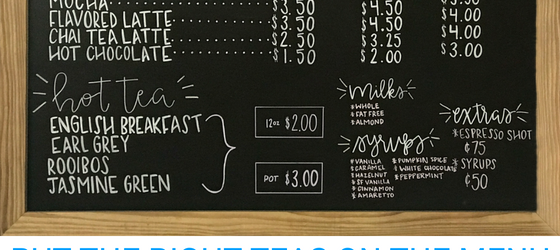 MOCHA $3.50 $4.50
FLAVORED LATTE $3.50 $4.50 $4.00
CHAI TEA LATTE $2.50 $3.25 $4.00
HOT CHOCOLATE $1.50 $2.00 $3.00
hot tea
ENGLISH BREAKFAST
EARL GREY
ROOIBOS
JASMINE GREEN
12oz $2.00
POT $3.00
milks
*WHOLE
*FAT FREE
*ALMOND
syrups
*VANILLA
*CARAMEL
*HAZELNUT
*SF VANILLA
*CINNAMON
*AMARETTO
*PUMPKIN SPICE
*WHITE CHOCOLATE
*PEPPERMINT
extras
*ESPRESSO SHOT
¢75
*SYRUPS
¢50
PUT THE RIGHT TEAS ON THE MENU